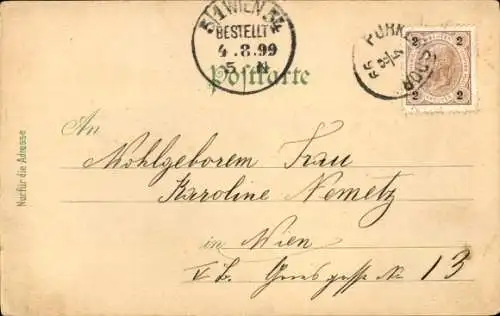 5/1 WIEN 54
BESTELLT
4.8.99
5.N
Postkarte
PURK
2 2
2 2
Nur für die Adresse
An
Wohlgeborem Frau
Karoline Nemetz
in Wien
No 13